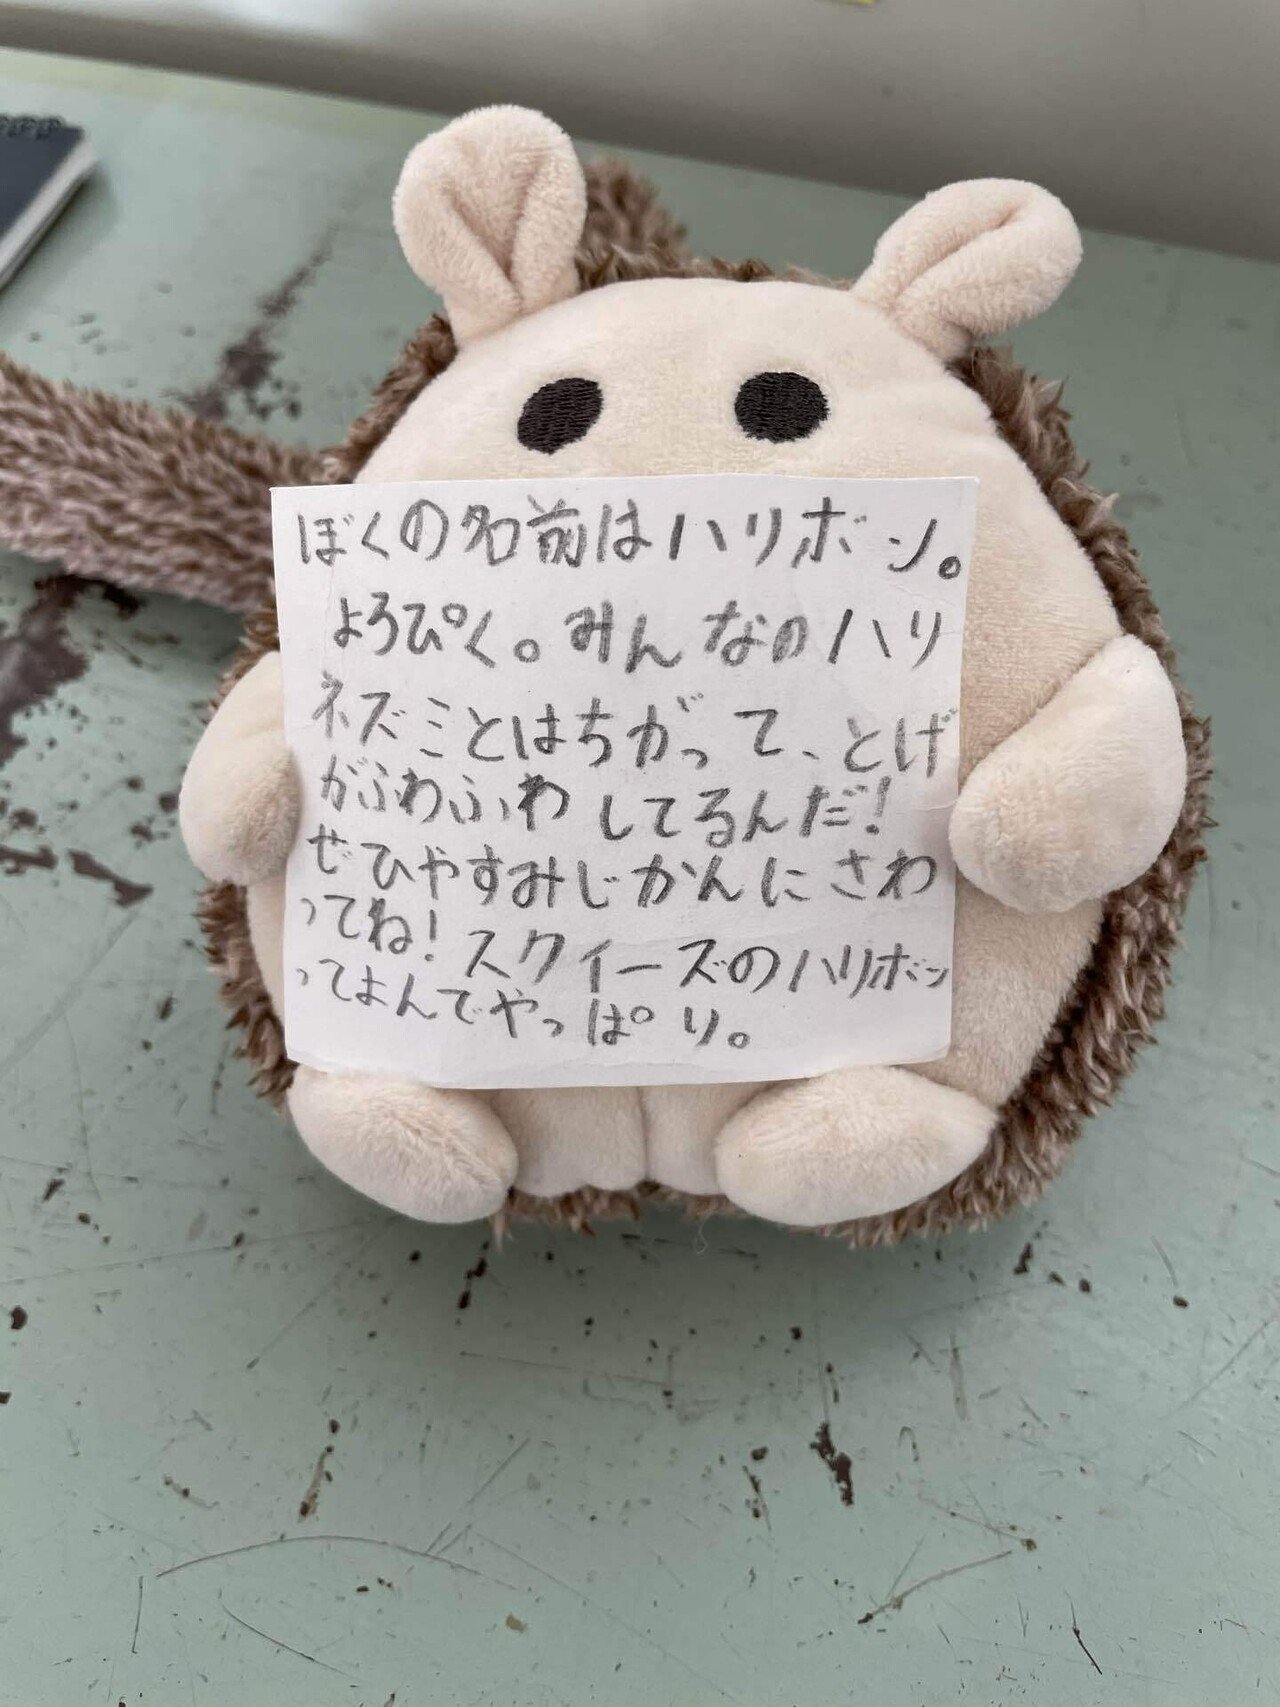 ぼくの名前はハリボン。
よろぴく。みんなのハリ
ネズミとはちがって、とげ
がふわふわしてるんだ!
ぜひやすみじかんにさわ
ってね!スクイーズのハリボン
ってよんでやっぱり。